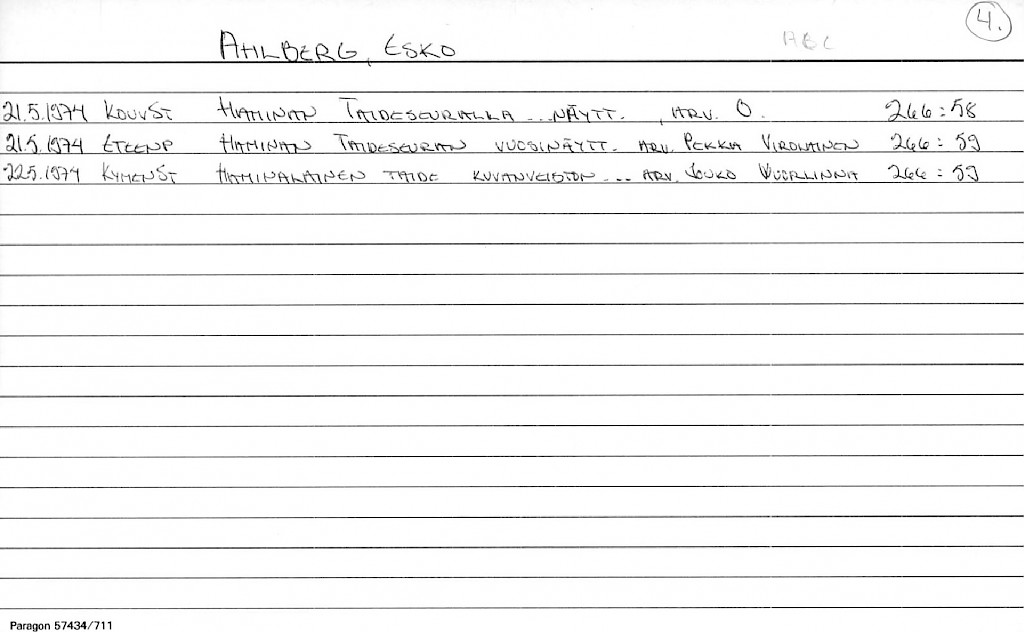 4.
AHLBERG, ESKO
21.5.1974 KOUVST HAMINAN TAIDESEURALLA ... NÄYTT. , ARV. O. 266:58
21.5.1974 ETEENP HAMINAN TAIDESEURAN VUOSINÄYTT. ARV. PEKKA VIROLAINEN 266:59
22.5.1974 KYMENST HAMINALAINEN TAIDE KUVANVEISTON... ARV. JOUKO VUORLINNA 266:59
Paragon 57434/711